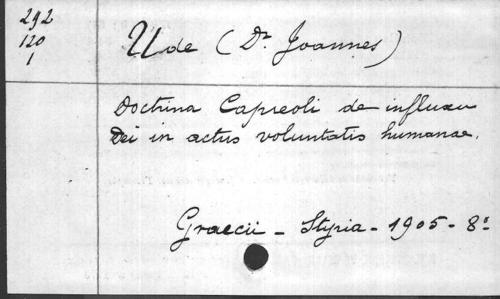 292
120
1
Ude (Dr. Joannes)
Doctrina Capreoli de influxu
Dei in actus voluntatis humanae.
Graecii - Styria - 1905 - 8º